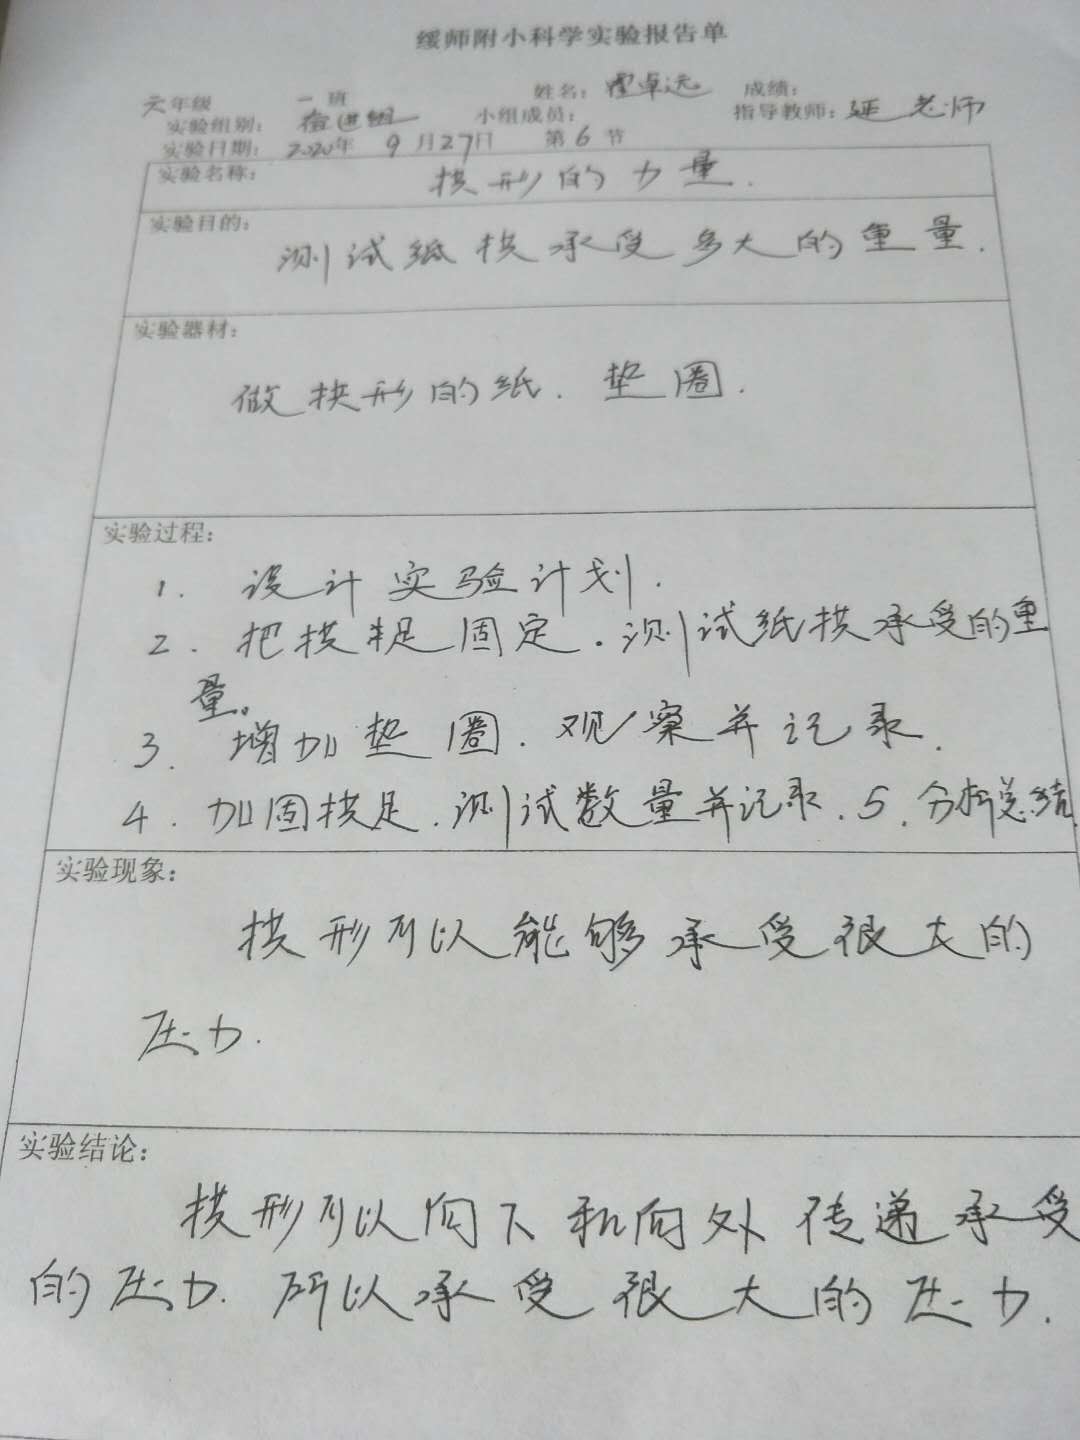 绥师附小科学实验报告单
六年级 一班 姓名: 卓远 成绩:
实验组别: 奋进组 小组成员: 指导教师: 延老师
实验日期: 2020年 9月27日 第6节
实验名称: 拱形的力量.
实验目的:
测试纸拱承受多大的重量.
实验器材:
做拱形的纸. 垫圈.
实验过程:
1. 设计实验计划.
2. 把拱足固定.测试纸拱承受的重
量。
3. 增加垫圈.观察并记录.
4. 加固拱足.测试数量并记录.5.分析总结
实验现象:
拱形可以能够承受很大的
压力.
实验结论:
拱形可以向下和向外传递承受
的压力.所以承受很大的压力.